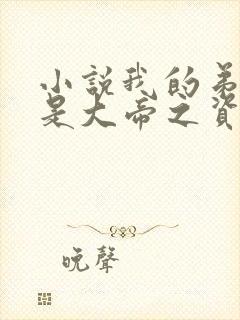 小說我的弟
是大帝之資
晚聲